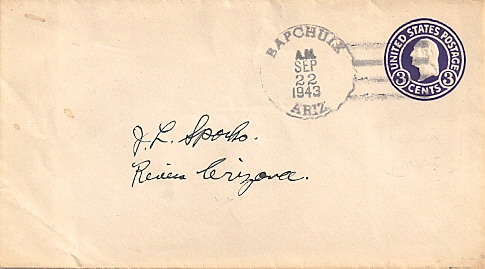 BAPCHULE
A.M.
SEP
22
1943
ARIZ.
UNITED STATES POSTAGE
3 CENTS 3
J. L. Sports.
Rivera Arizona.